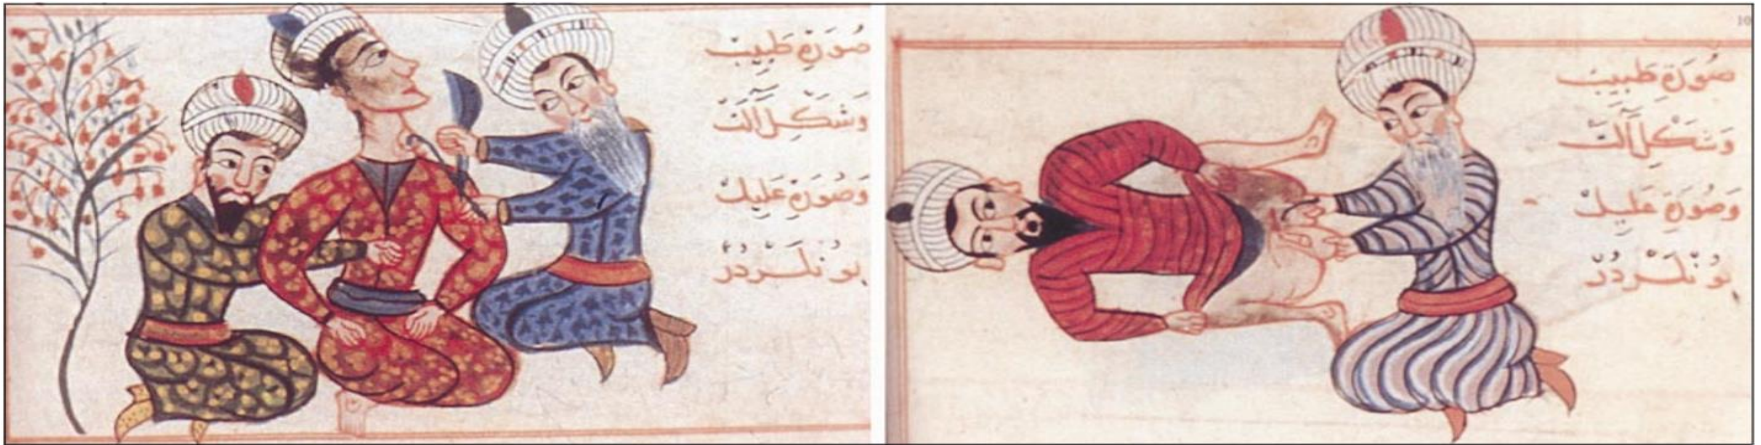 صُورَةِ طَبِيبْ
وَشَكْلِ آلَتْ
وَصُورَةِ عَلِيلْ
بُونْلَرْدُرْ
صُورَةِ طَبِيبْ
وَشَكْلِ آلَتْ
وَصُورَةِ عَلِيلْ
بُونْلَرْدُرْ